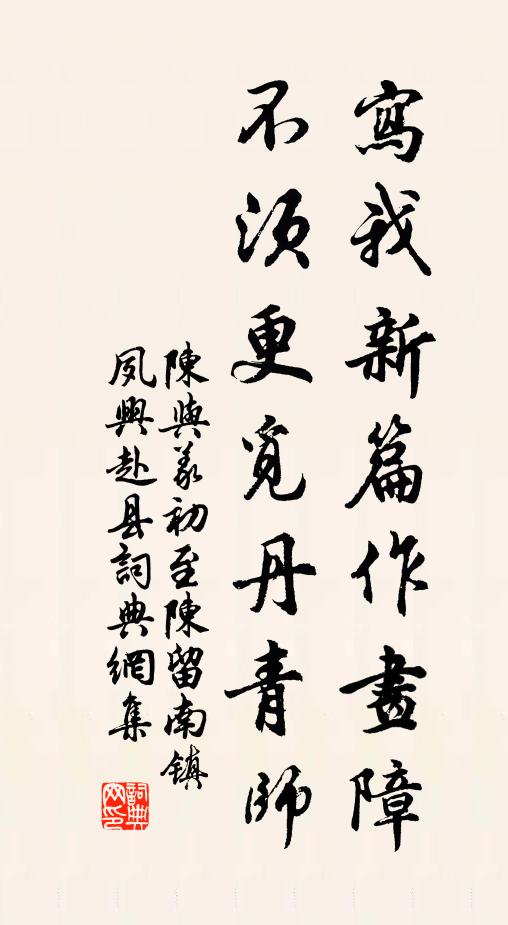 寫我新篇作畫障
不須更覓丹青師
陳與義初至陳留南镇
夙興赴县詞典網集
詞典网印